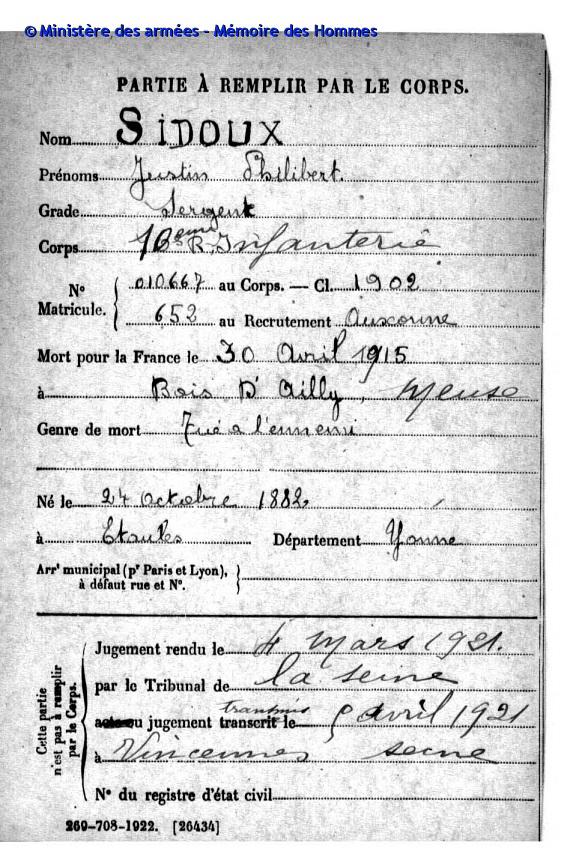 © Ministère des armées - Mémoire des Hommes
PARTIE À REMPLIR PAR LE CORPS.
Nom SIDOUX
Prénoms Justin Philibert.
Grade Sergent
Corps 10eme R. Infanterie
N° Matricule. 010667 au Corps. — Cl. 1902
652 au Recrutement Auxonne
Mort pour la France le 30 Avril 1915
à Bois D'Ailly, Meuse
Genre de mort Tué a l'ennemi
Né le 24 Octobre 1882
à Etaules Département Yonne
Arrt municipal (pr Paris et Lyon),
à défaut rue et N°.
Cette partie n'est pas à remplir par le Corps.
Jugement rendu le 4 Mars 1921.
par le Tribunal de la Seine
acte ou jugement transcrit le transmis avril 1921
à Vincennes Seine
N° du registre d'état civil
269-708-1922. [26434]